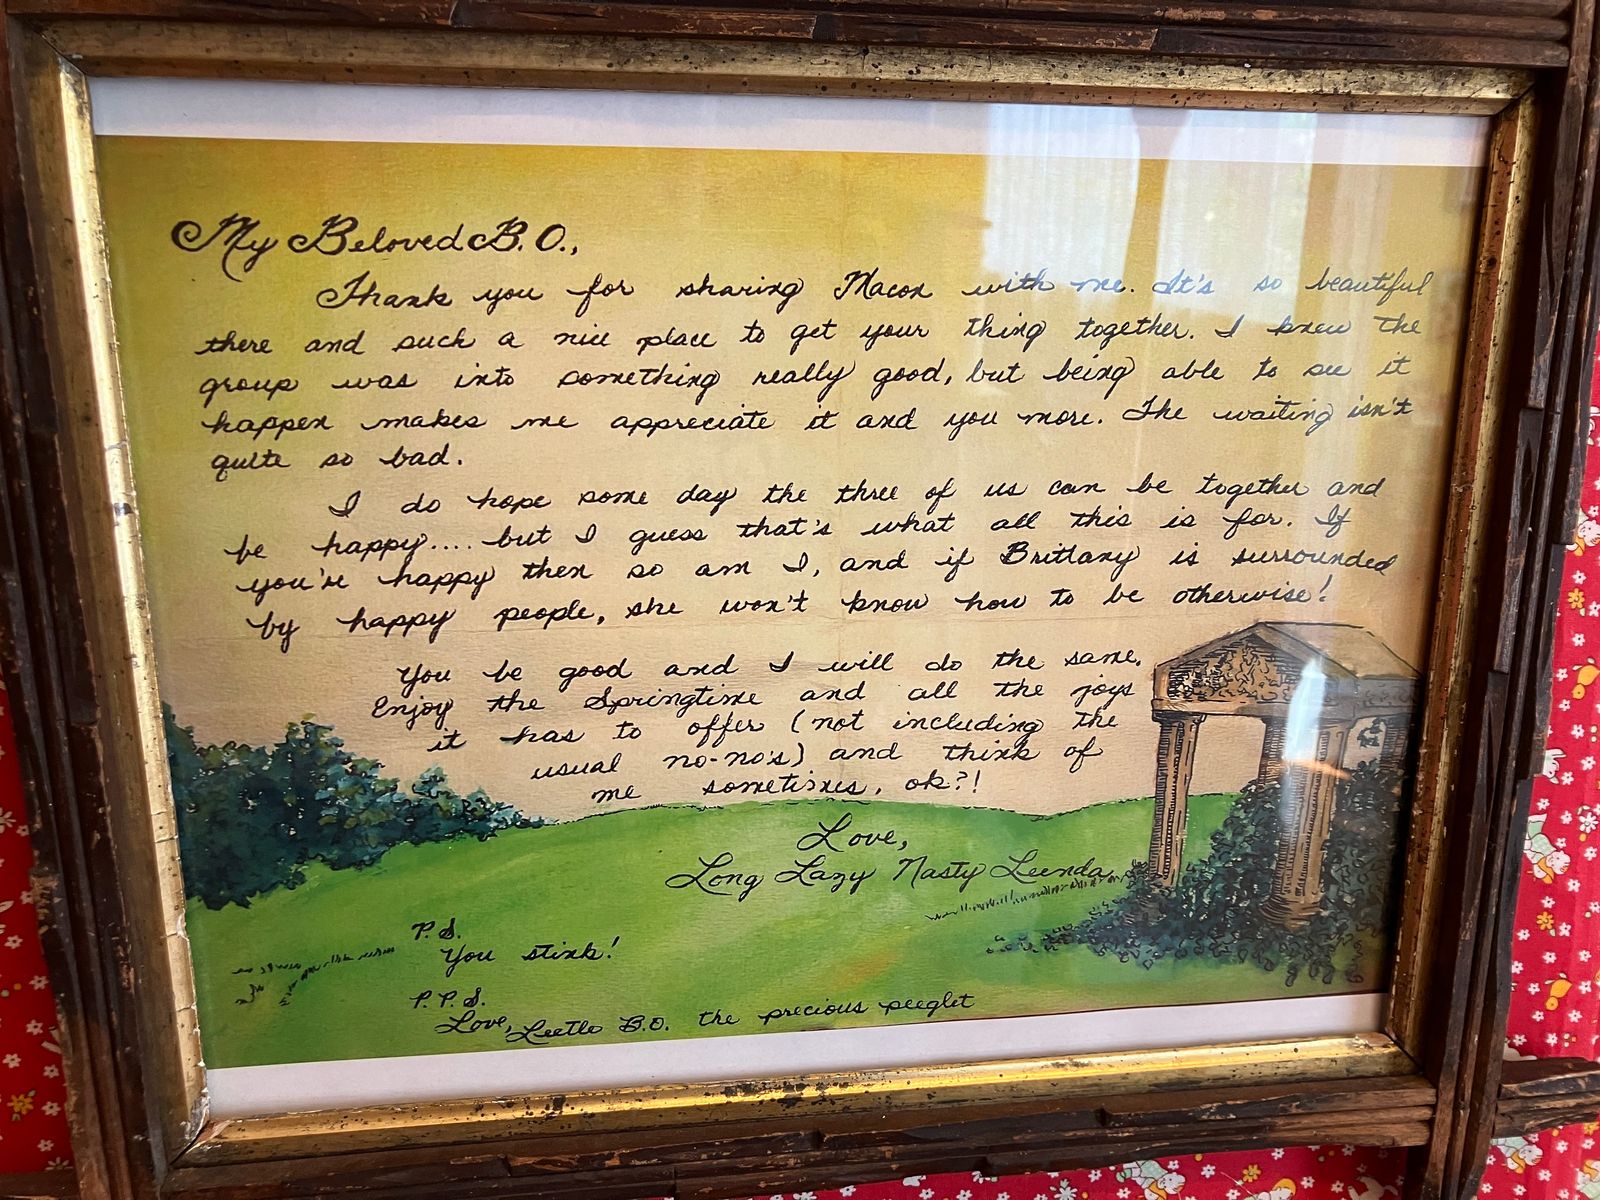 My Beloved B.O.,
Thank you for sharing Macon with me. It's so beautiful
there and such a nice place to get your thing together. I knew the
group was into something really good, but being able to see it
happen makes me appreciate it and you more. The waiting isn't
quite so bad.
I do hope some day the three of us can be together and
be happy.... but I guess that's what all this is for. If
you're happy then so am I, and if Brittany is surrounded
by happy people, she won't know how to be otherwise!
You be good and I will do the same.
Enjoy the Springtime and all the joys
it has to offer (not including the
usual no-no's) and think of
me sometimes, ok?!
Love,
Long Lazy Nasty Leenda
P.S.
You stink!
P.P.S.
Love, Leetle B.O. the precious peeglet